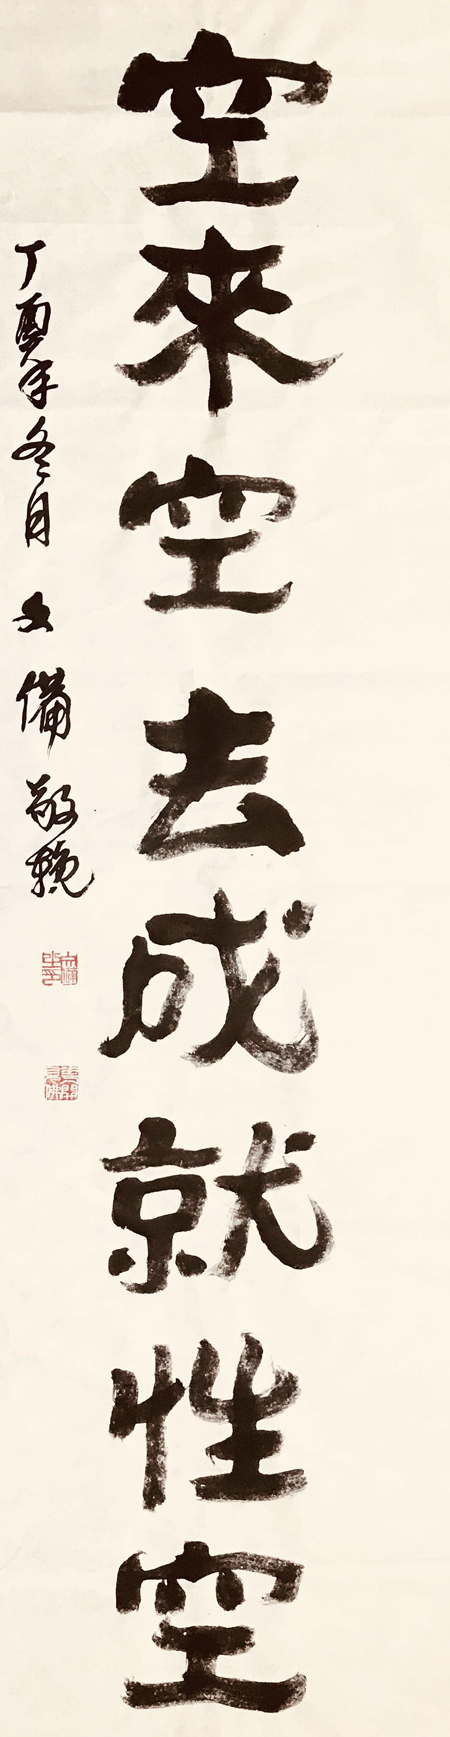 空來空去成就性空
丁酉年冬月 備敬挽